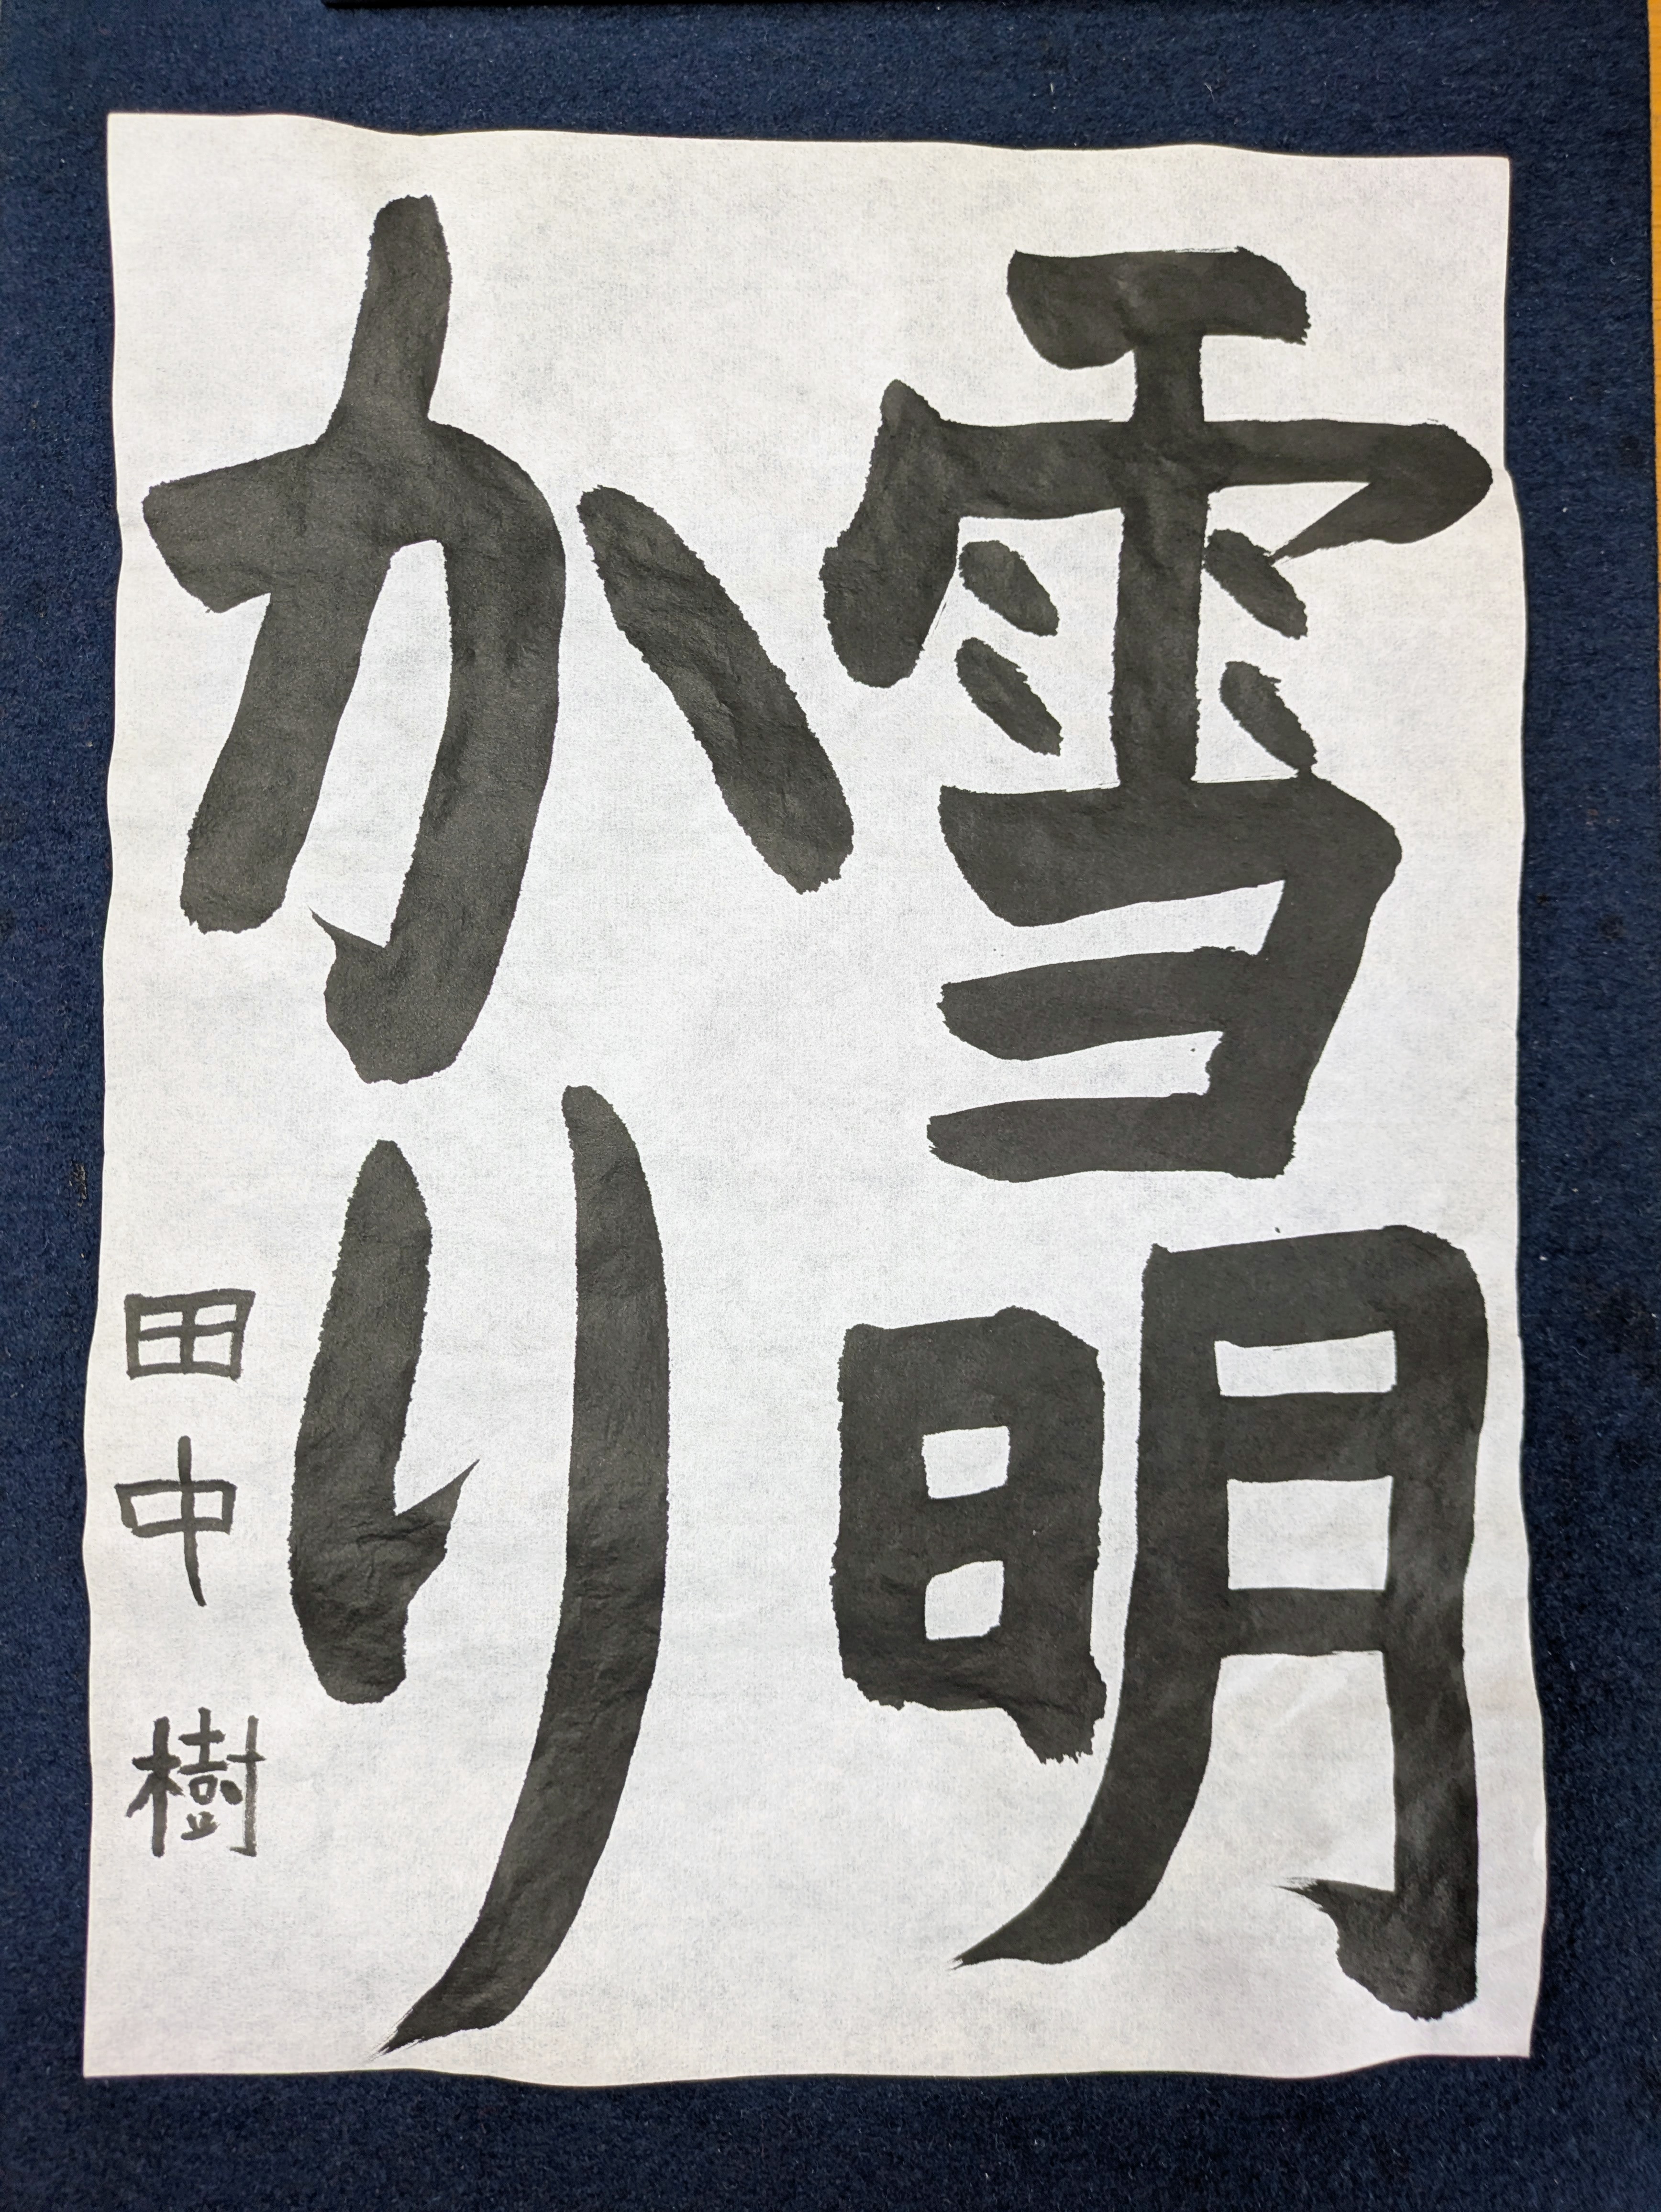 雪明
かり
田中 樹